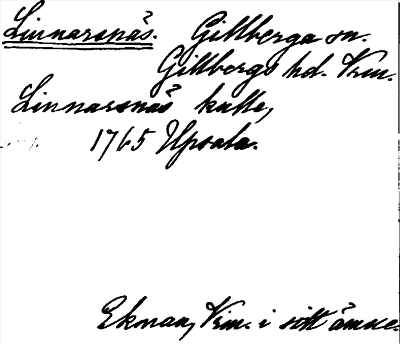 Linnarsnäs. Gillberga sn.
Gillbergs hd. Vrm.
Linnarsnäs kalle,
1765 Upsala.
Ekman, Vrm. i sitt ämne.